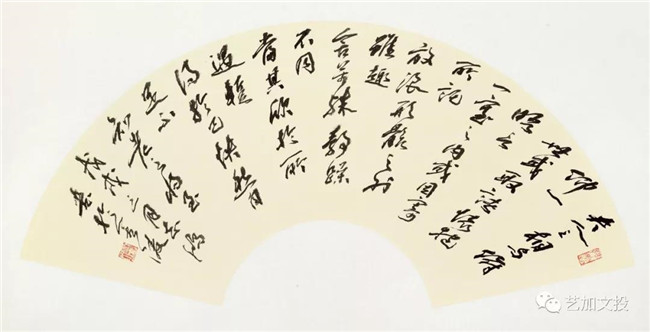 夫人之相與
仰一
世或取諸懷抱
晤言
一室之內或因寄
所託
放浪形骸之外
雖趣
舍萬殊靜躁
不同
當其欣於所
遇暫
得於己快然自
足不
知老之將至
艺加文投